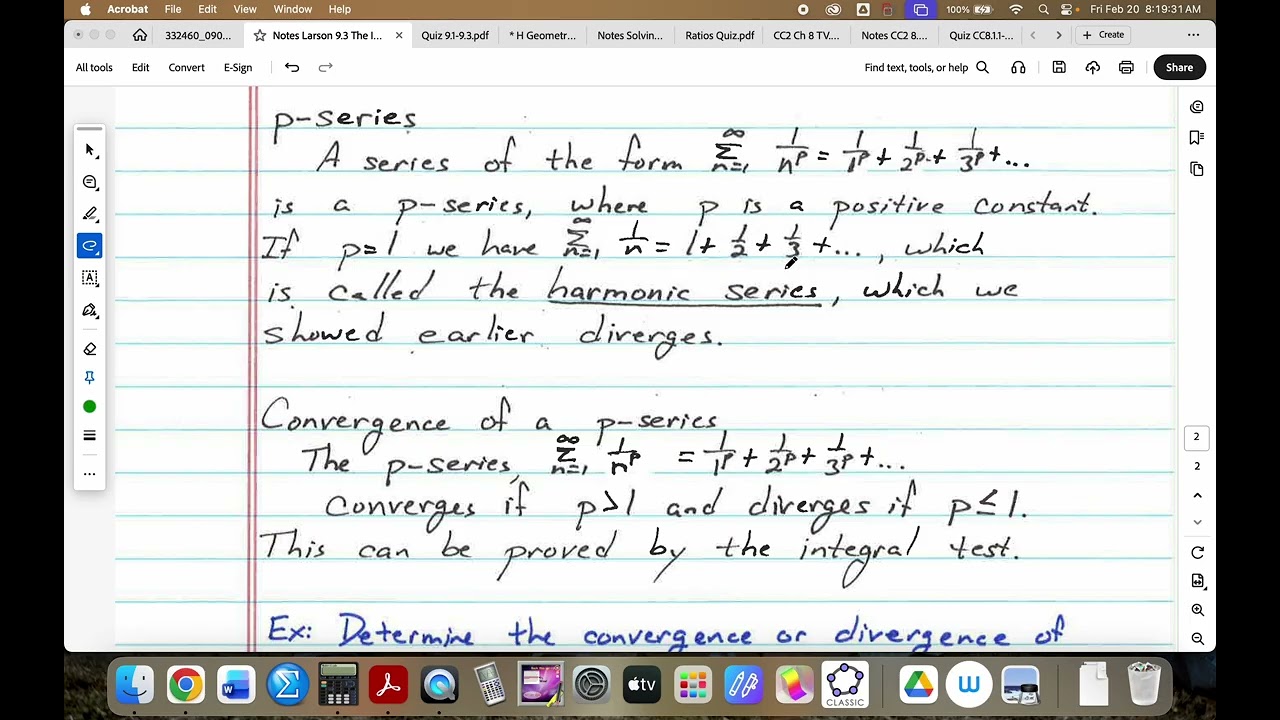 Acrobat File Edit View Window Help 100% Fri Feb 20 8:19:31 AM
332460_090... Notes Larson 9.3 The I... × Quiz 9.1-9.3.pdf * H Geometr... Notes Solvin... Ratios Quiz.pdf CC2 Ch 8 TV.... Notes CC2 8.... Quiz CC8.1.1-... + Create
All tools Edit Convert E-Sign Find text, tools, or help Share
p-series
A series of the form ∞Σn=1 1/n^p = 1/1^p + 1/2^p + 1/3^p + ...
is a p-series, where p is a positive constant.
If p=1 we have ∞Σn=1 1/n = 1 + 1/2 + 1/3 + ..., which
is called the harmonic series, which we
showed earlier diverges.
Convergence of a p-series
The p-series, ∞Σn=1 1/n^p = 1/1^p + 1/2^p + 1/3^p + ...
Converges if p>1 and diverges if p≤1.
This can be proved by the integral test.
Ex: Determine the convergence or divergence of
2
2
tv
W
CLASSIC
W